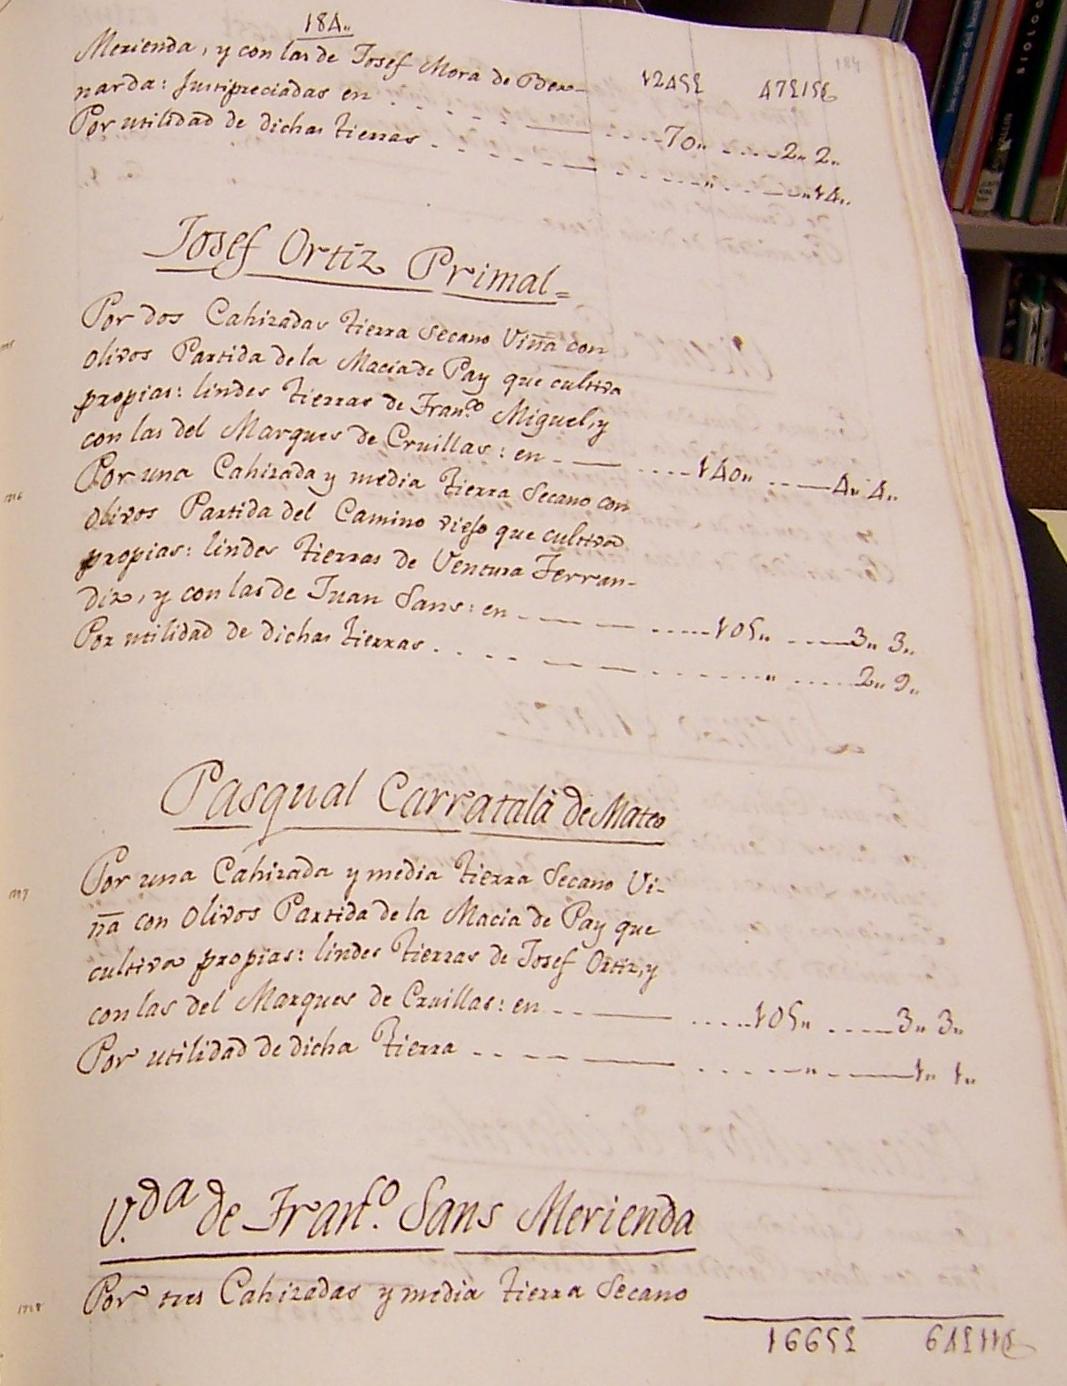 184..
Merienda, y con las de Josef Mora de Ber-
narda: Justipreciadas en . . . . . — . . . . 70,, . . . . — 2,, 2,,
Por utilidad de dichas tierras . . . . . . — . . . . . . ,, . . . . — ,, 14,,
Josef Ortiz Primal=
Por dos Cahizadas tierra Secano Viña con
olivos Partida de la Macia de Pay que cultiva
propias: lindes tierras de Fran.co Miguel, y
con las del Marques de Cruillas: en . . — . . . . . 140,, . . . — 4,, 4,,
Por una Cahizada y media tierra Secano con
olivos Partida del Camino viejo que cultiva
propias: lindes tierras de Ventura Ferran-
diz, y con las de Juan Sans: en . . . — — . . . . . 105,, . . . . — 3,, 3,,
Por utilidad de dichas tierras . . . . — — . . . . . . ,, . . . . . 2,, 9,,
Pasqual Carratalá de Mateo
Por una Cahizada y media tierra Secano Vi-
ña con olivos Partida de la Macia de Pay que
cultiva propias: lindes tierras de Josef Ortiz, y
con las del Marques de Cruillas: en . . . — . . . . . 105,, . . . . — 3,, 3,,
Por utilidad de dicha tierra . . . . — . . . . . ,, . — 1,, 1,,
V.da de Fran.co Sans Merienda
Por tres Cahizadas y media tierra Secano
16655